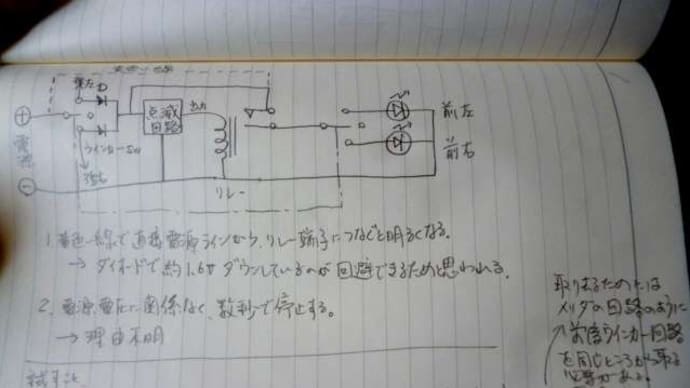 電源
点滅
回路
出力
リレー
前左
前右
1. 黄色い線で直接電源ラインから、リレー端子につなぐと明るくなる。
→ ダイオードで約1.6Vダウンしているのが回避できるためと思われる。
2. 電源電圧に関係なく、数秒で停止する。
→ 理由不明
取りするためには
メリダの回路のように
ウインカー回路
を同じところから取る
必要がある。